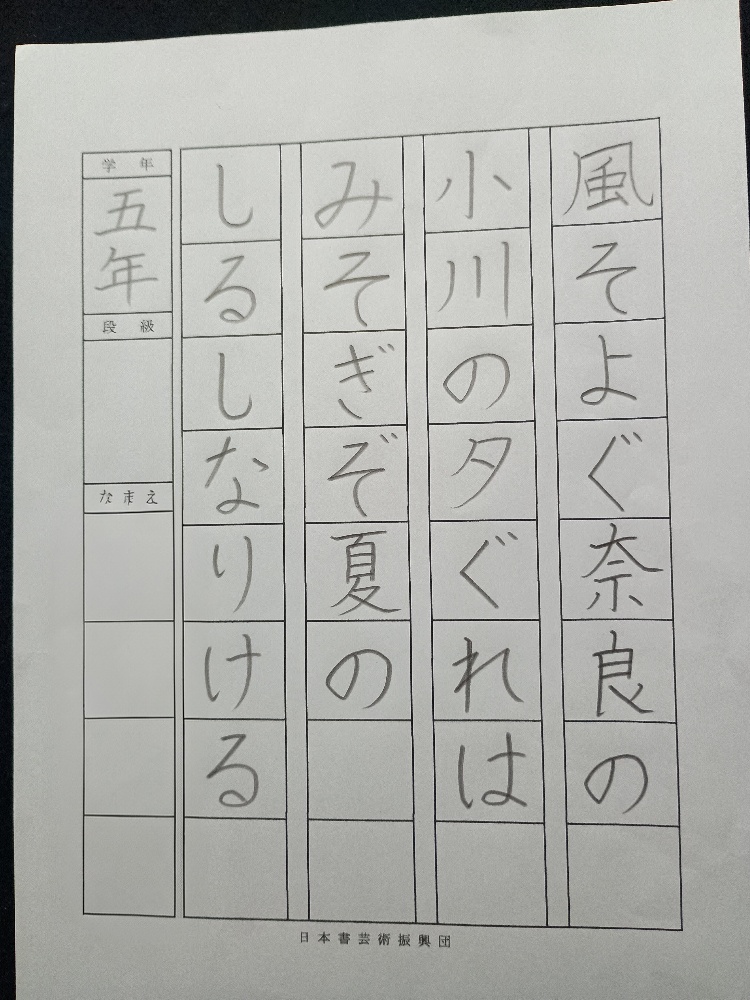 風そよぐ奈良の
小川の夕ぐれは
みそぎぞ夏の
しるしなりける
学年
五年
段級
なまえ
日本書芸術振興団